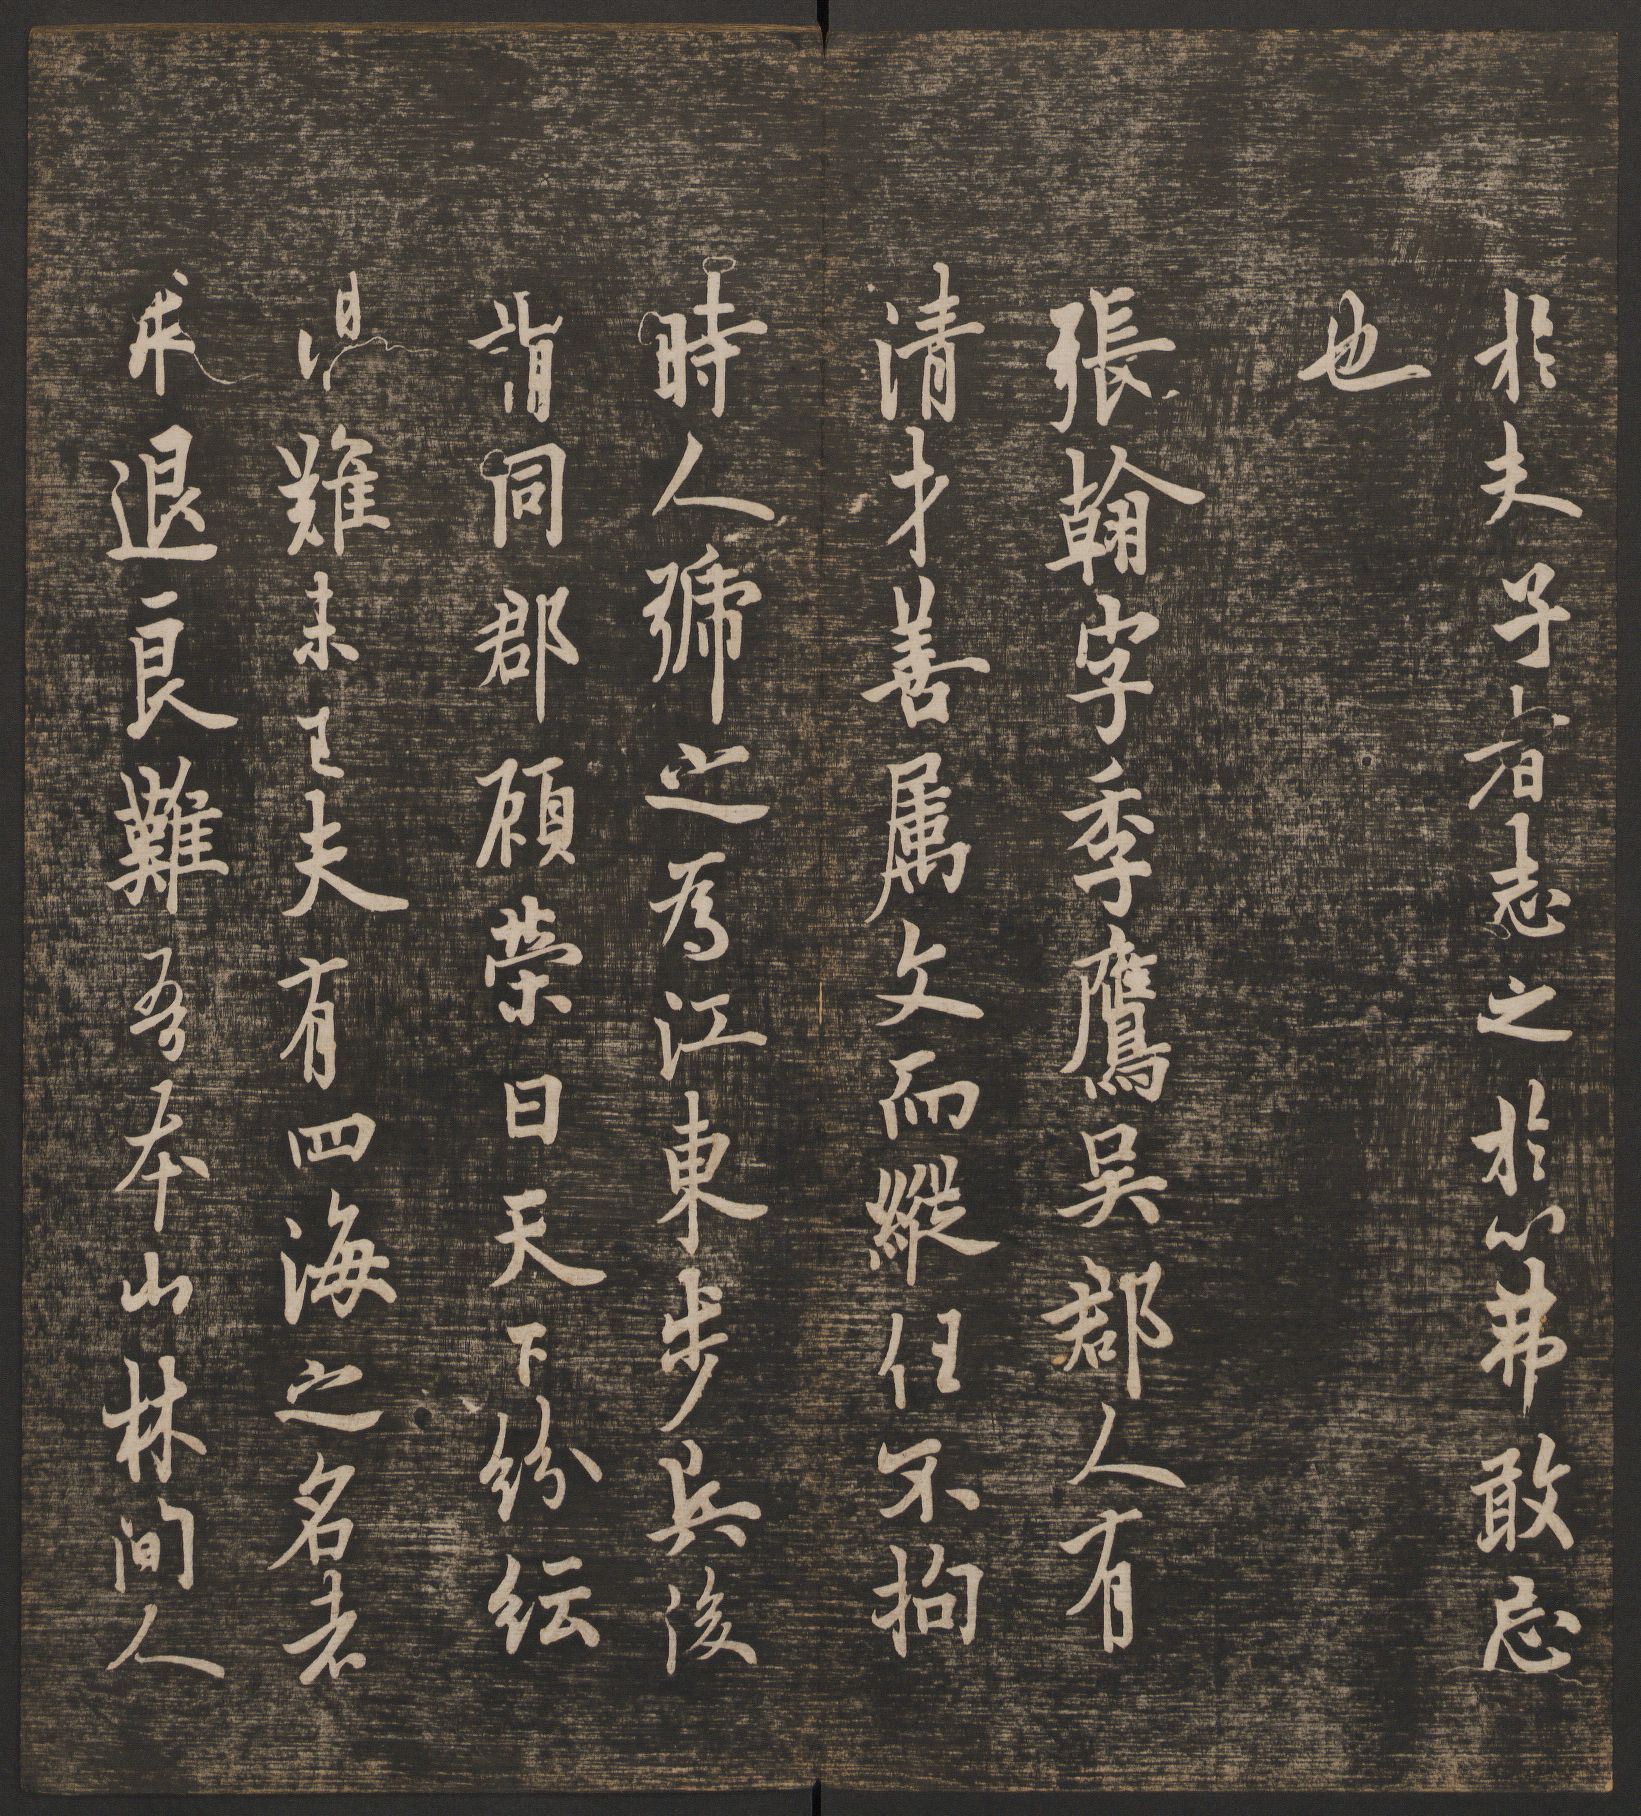 於夫子者志之於心弗敢忘
也
張翰字季鷹吳郡人有
清才善屬文而縱任不拘
時人號之為江東步兵後
謂同郡顧榮曰天下紛紜
難未已夫有四海之名者
求退良難吾本山林間人